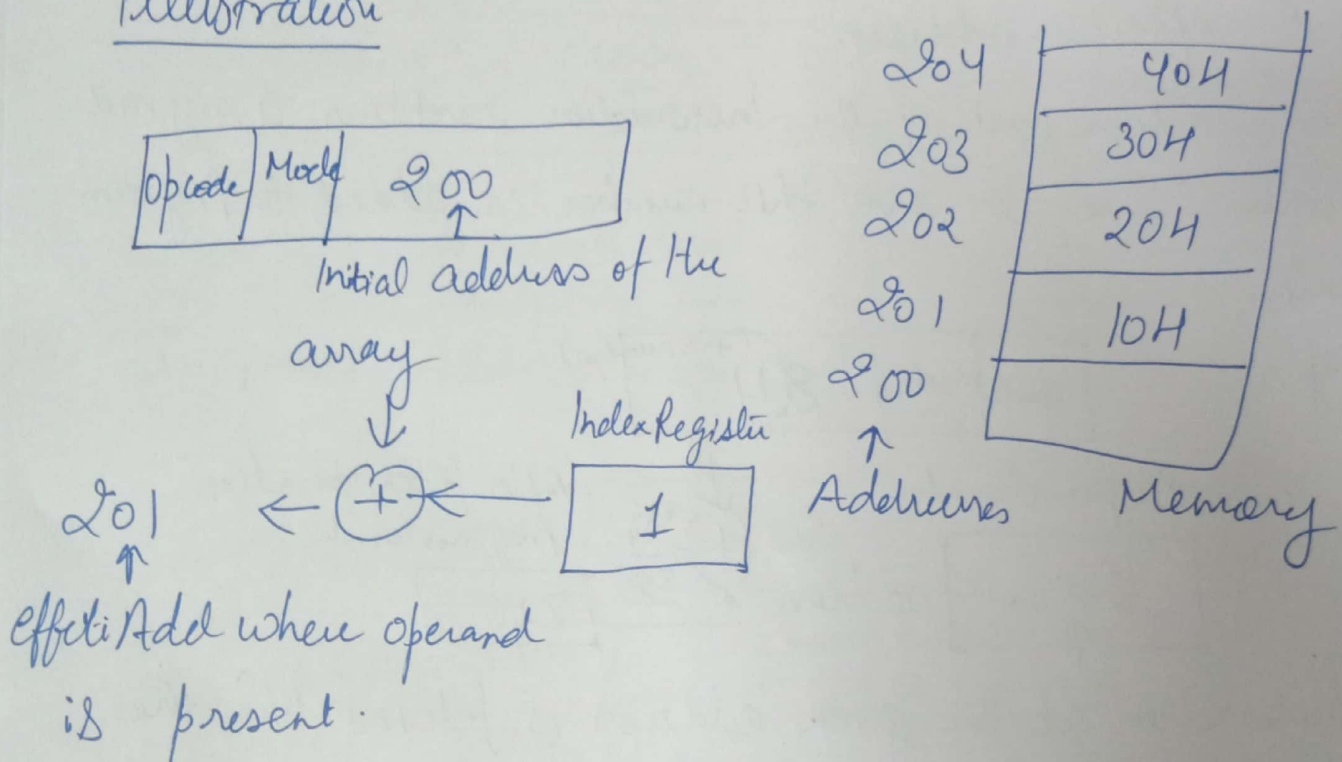 Illustration
Opcode Mode 200
Initial address of the
array
Index Register
1
+
201
effeti Add where operand
is present.
204 404
203 304
202 204
201 104
200
Addresses Memory